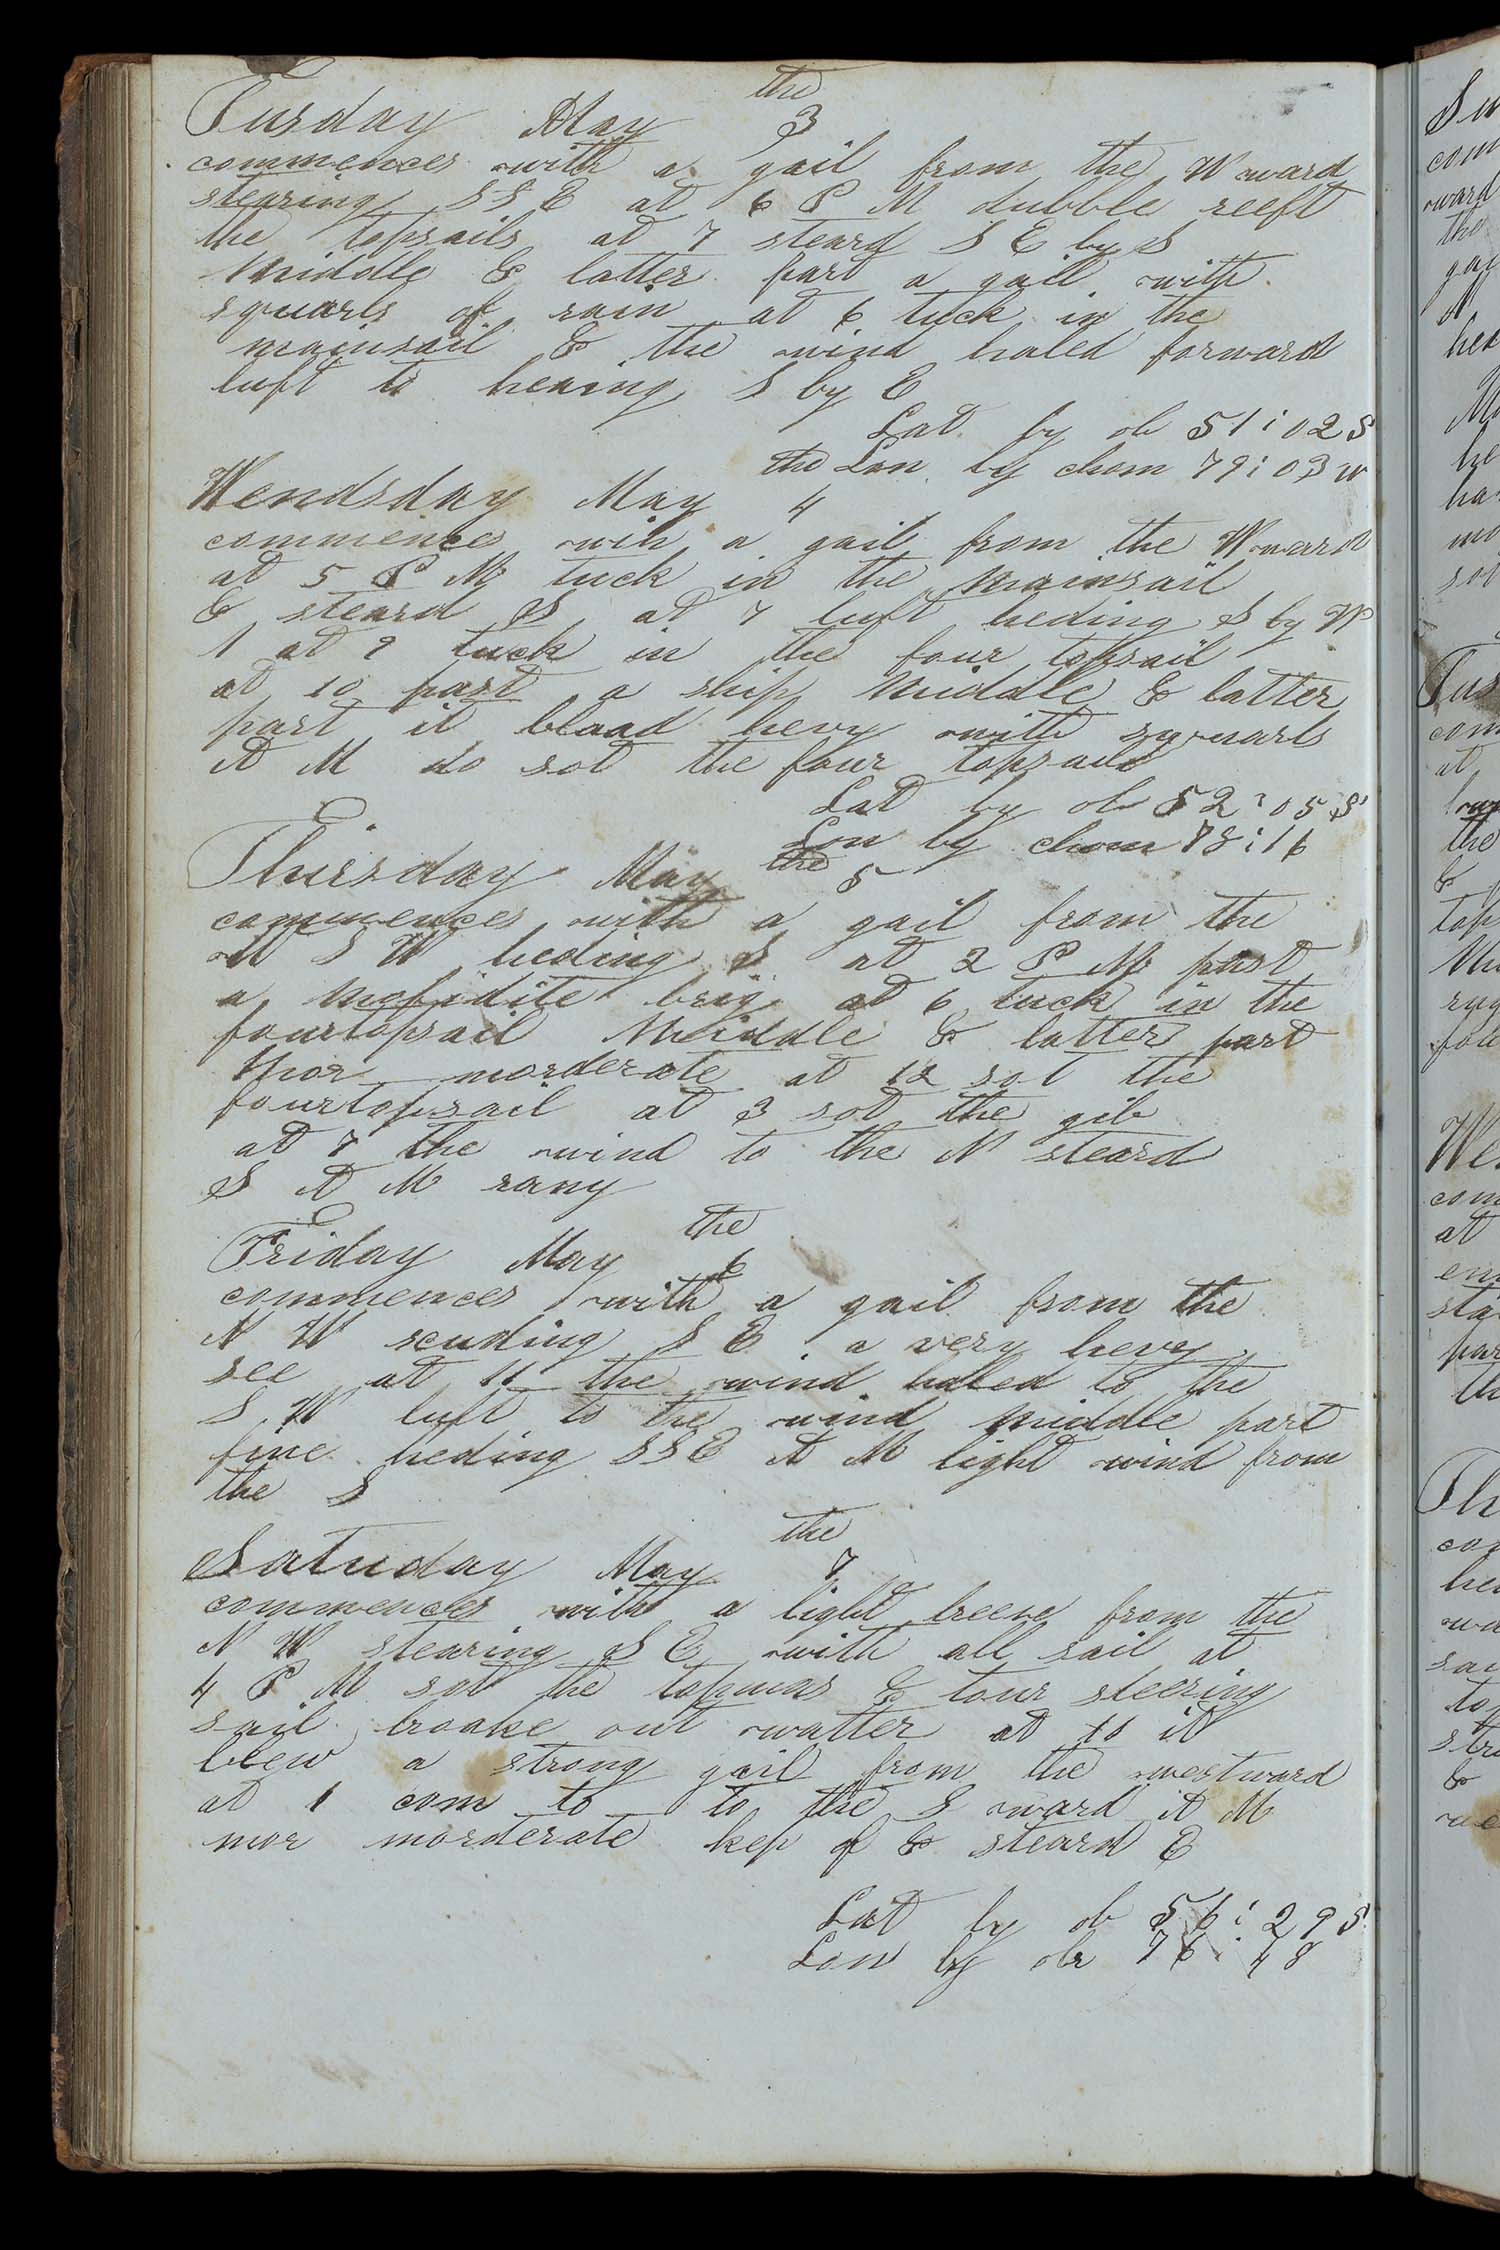 Tusday May the 3
commences with a gail from the W ward
stearing S S E at 6 P M dubble reeft
the topsails at 7 steard S E by S
Middle & latter part a gail with
squarls of rain at 6 tuck in the
mainsail & the wind haled forward
luft to heaing S by E
Lat by ob 51:02 S
Lon by chom 79:03 W
Wendsday May the 4
commences wih a gail from the W ward
at 5 P M tuck in the mainsail
& steard S at 7 luft heding S by W
1 at 9 tuck in the four topsail
at 10 past a ship Middle & latter
part it blaad hevy with squarls
A M do sot the four topsail
Lat by ob 52:05 S
Lon by chom 78:16
Thursday May the 5
commences with a gail from the
W S W heding S at 2 P M past
a mofidite brig at 6 tuck in the
fourtopsail Middle & latter part
mor morderate at 12 sot the
fourtopsail at 3 sot the gib
at 7 the wind to the N steard
S A M rany
Friday May the 6
commences with a gail from the
N W scuding S E a very hevy
see at 11 the wind haled to the
S W luft to the wind middle part
fine heding S S E A M light wind from
the S
Satuday May the 7
commences with a light breeve from the
N W stearing S E with all sail at
4 P M sot the topmas & tour steering
sail broake out watter at 10 it
blew a strong gail from the westward
at 1 com to to the S ward A M
mor morderate kep of & steard E
Lat by ob 56:29 S
Lon by ob 76:48